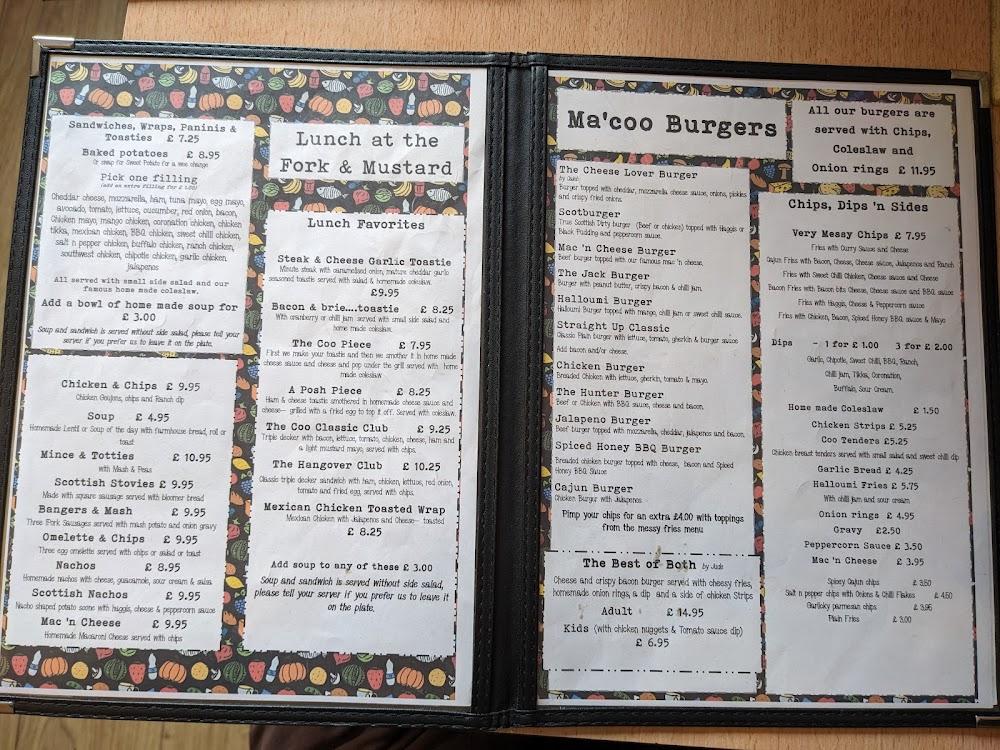 Sandwiches, Wraps, Paninis &
Toasties £ 7.25
Baked potatoes £ 8.95
Or swap for Sweet Potato for a wee change
Pick one filling
(add an extra filling for £ 1.00)
Cheddar cheese, mozzarella, ham, tuna mayo, egg mayo,
avocado, tomato, lettuce, cucumber, red onion, bacon,
Chicken mayo, mango chicken, coronation chicken, chicken
tikka, mexican chicken, BBQ chicken, sweet chilli chicken,
salt n pepper chicken, buffalo chicken, ranch chicken,
southwest chicken, chipotle chicken, garlic chicken
jalapenos
All served with small side salad and our
famous home made coleslaw.
Add a bowl of home made soup for
£ 3.00
Soup and sandwich is served without side salad, please tell your
server if you prefer us to leave it on the plate.
Chicken & Chips £ 9.95
Chicken Goujons, chips and Ranch dip
Soup £ 4.95
Homemade Lentil or Soup of the day with farmhouse bread, roll or
toast
Mince & Totties £ 10.95
with Mash & Peas
Scottish Stovies £ 9.95
Made with square sausage served with bloomer bread
Bangers & Mash £ 9.95
Three Pork Sausages served with mash potato and onion gravy
Omelette & Chips £ 9.95
Three egg omelette served with chips or salad or toast
Nachos £ 8.95
Homemade nachos with cheese, guacamole, sour cream & salsa
Scottish Nachos £ 9.95
Nacho shaped potato scone with haggis, cheese & peppercorn sauce
Mac 'n Cheese £ 9.95
Homemade Macaroni Cheese served with chips
Lunch at the
Fork & Mustard
Lunch Favorites
Steak & Cheese Garlic Toastie
Minute steak with caramelised onion, mature cheddar garlic
seasoned toastie served with salad & homemade coleslaw.
£9.95
Bacon & brie....toastie £ 8.25
With cranberry or chilli jam served with small side salad and
home made coleslaw.
The Coo Piece £ 7.95
First we make your toastie and then we smother it in home made
cheese sauce and cheese and pop under the grill served with home
made coleslaw
A Posh Piece £ 8.25
Ham & cheese toastie smothered in homemade cheese sauce and
cheese— grilled with a fried egg to top it off. Served with coleslaw.
The Coo Classic Club £ 9.25
Triple decker with bacon, lettuce, tomato, chicken, cheese, ham and
a light mustard mayo, served with chips.
The Hangover Club £ 10.25
Classic triple decker sandwich with ham, chicken, lettuce, red onion,
tomato and fried egg, served with chips.
Mexican Chicken Toasted Wrap
Mexican Chicken with Jalapenos and Cheese— toasted
£ 8.25
Add soup to any of these £ 3.00
Soup and sandwich is served without side salad,
please tell your server if you prefer us to leave it
on the plate.
Ma'coo Burgers
The Cheese Lover Burger
Burger topped with cheddar, mozzarella, cheese sauce, onions, pickles
and crispy fried onions.
Scotburger
True Scottish Dirty burger (Beef or chicken) topped with Haggis or
Black Pudding and peppercorn sauce.
Mac 'n Cheese Burger
Beef burger topped with our famous mac 'n cheese.
The Jack Burger
Burger with peanut butter, crispy bacon & chilli jam.
Halloumi Burger
Halloumi Burger topped with mango, chilli jam or sweet chilli sauce.
Straight Up Classic
Classic Plain burger with lettuce, tomato, gherkin & burger sauce
Add bacon and/or cheese.
Chicken Burger
Breaded Chicken with lettuce, gherkin, tomato & mayo.
The Hunter Burger
Beef or Chicken with BBQ sauce, cheese and bacon.
Jalapeno Burger
Beef burger topped with mozzarella, cheddar, jalapenos and bacon.
Spiced Honey BBQ Burger
Breaded chicken burger topped with cheese, bacon and Spiced
Honey BBQ Sauce
Cajun Burger
Chicken Burger with Jalapenos
Pimp your chips for an extra £4.00 with toppings
from the messy fries menu
The Best of Both by Jude
Cheese and crispy bacon burger served with cheesy fries,
homemade onion rings, a dip and a side of chicken Strips
Adult £ 14.95
Kids (with chicken nuggets & Tomato sauce dip)
£ 6.95
All our burgers are
served with Chips,
Coleslaw and
Onion rings £ 11.95
Chips, Dips 'n Sides
Very Messy Chips £ 7.95
Fries with Curry Sauce and Cheese
Cajun Fries with Bacon, Cheese, Cheese sauce, Jalapenos and Ranch
Fries with Sweet Chilli Chicken, Cheese sauce and Cheese
Bacon Fries with Bacon bits Cheese, Cheese sauce and BBQ sauce
Fries with Haggis, Cheese & Peppercorn sauce
Fries with Chicken, Bacon, Spiced Honey BBQ sauce & Mayo
Dips – 1 for £ 1.00 3 for £ 2.00
Garlic, Chipotle, Sweet Chilli, BBQ, Ranch,
Chilli Jam, Tikka, Coronation,
Buffalo, Sour Cream.
Home made Coleslaw £ 1.50
Chicken Strips £ 5.25
Coo Tenders £5.25
Chicken breast tenders served with small salad and sweet chilli dip
Garlic Bread £ 4.25
Halloumi Fries £ 5.75
With chilli jam and sour cream
Onion rings £ 4.95
Gravy £2.50
Peppercorn Sauce £ 3.50
Mac 'n Cheese £ 3.95
Spicey Cajun chips £ 3.50
Salt n pepper chips with Onions & Chilli Flakes £ 4.50
Garlicky parmesan chips £ 3.95
Plain Fries £ 3.00